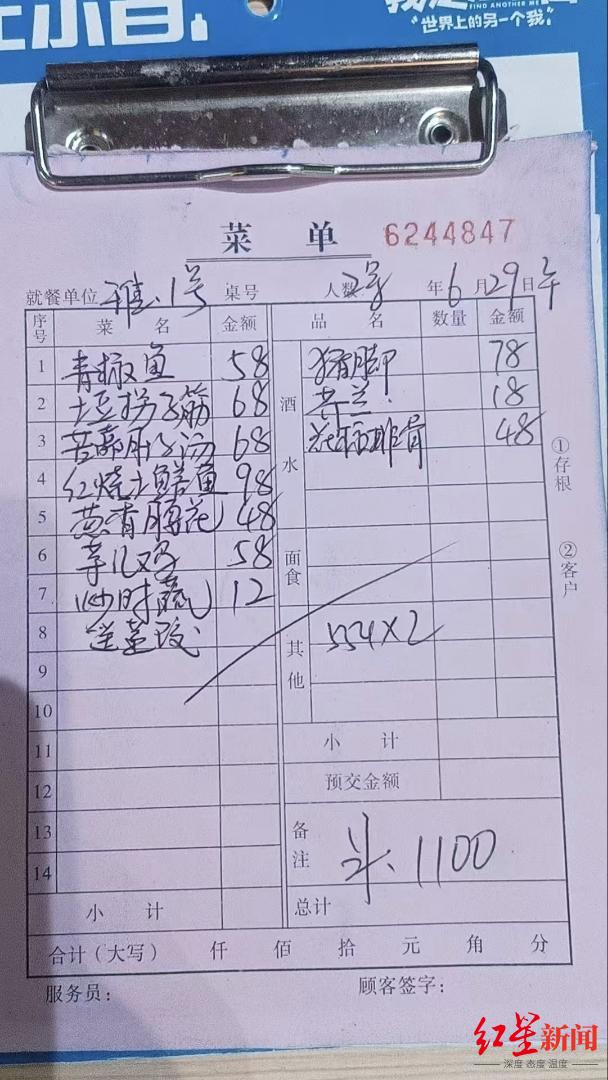 FIND ANOTHER ME
"世界上的另一个我"
菜 单 6244847
就餐单位 雅.1号 桌号 人数 2号 年 6 月 29 日 午
序号 菜 名 金额 品 名 数量 金额
1 青椒鱼 58 猪脚 78
2 土豆拐子筋 68 酒水 芥兰 18
3 68 排骨 48
4 红烧土鳝鱼 98
5 葱香腰花 48
6 芋儿鸡 58 面食
7 炒时蔬 12
8 送 其他 554×2
9
10
11 小 计
12 预交金额
13 备注 1100
14
小 计 总计
合计(大写) 仟 佰 拾 元 角 分
服务员: 顾客签字:
①存根
②客户
红星新闻
深度 态度 温度